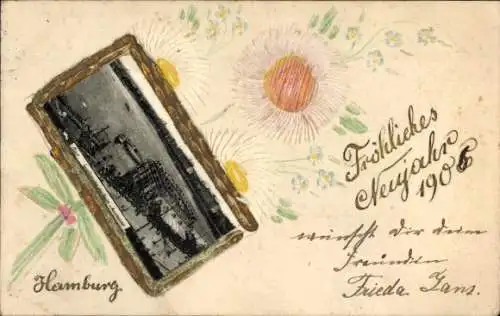 Fröhliches
Neujahr
1906
wünscht Dir deine
Freundin
Frieda Jans.
Hamburg.